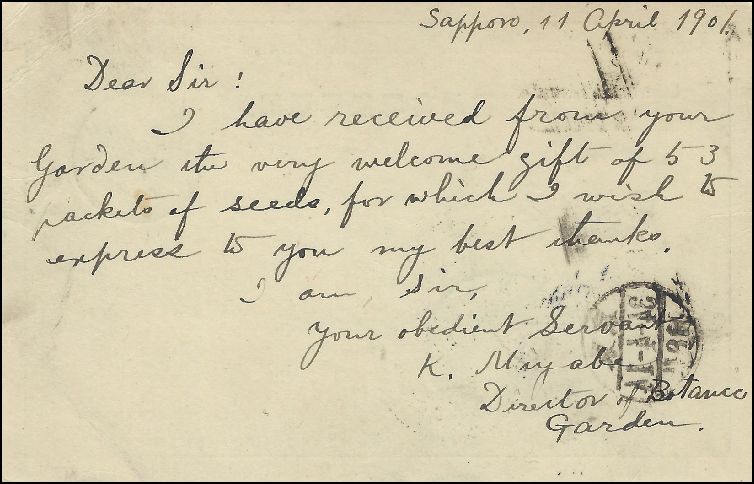 Sapporo, 11 April 1901.
Dear Sir!
I have received from your
Garden the very welcome gift of 53
packets of seeds, for which I wish to
express to you my best thanks.
I am, sir,
your obedient Servant
K. Miyabe
Director of Botanic
Garden.